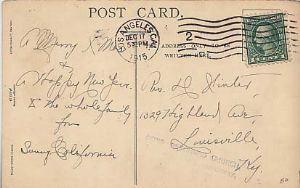 POST CARD.
LOS ANGELES, CAL.
DEC 17
5 PM
1915
2
ADDRESS ONLY TO BE
WRITTEN HERE
A Merry X Mas
&
Happy New Year.
to the whole family
from
Sunny California
Rev. H. Hinter
1029 Highland Ave,
Louisville
Ky.